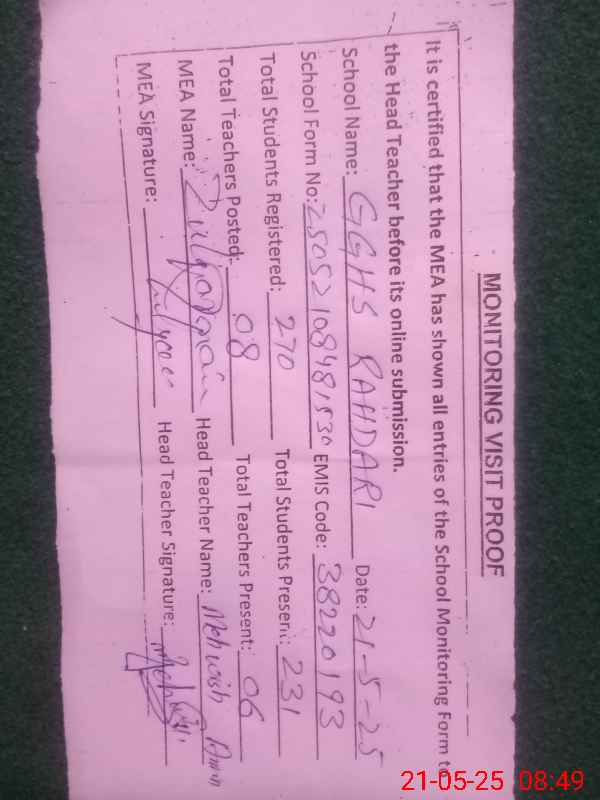 MONITORING VISIT PROOF
It is certified that the MEA has shown all entries of the School Monitoring Form to
the Head Teacher before its online submission.
School Name: GGHS RAHDARI Date: 21-5-25
School Form No: 25052108481530 EMIS Code: 38220193
Total Students Registered: 270 Total Students Present: 231
Total Teachers Posted: 08 Total Teachers Present: 06
MEA Name: Head Teacher Name: Mehwish Amin
MEA Signature: Head Teacher Signature:
21-05-25 08:49